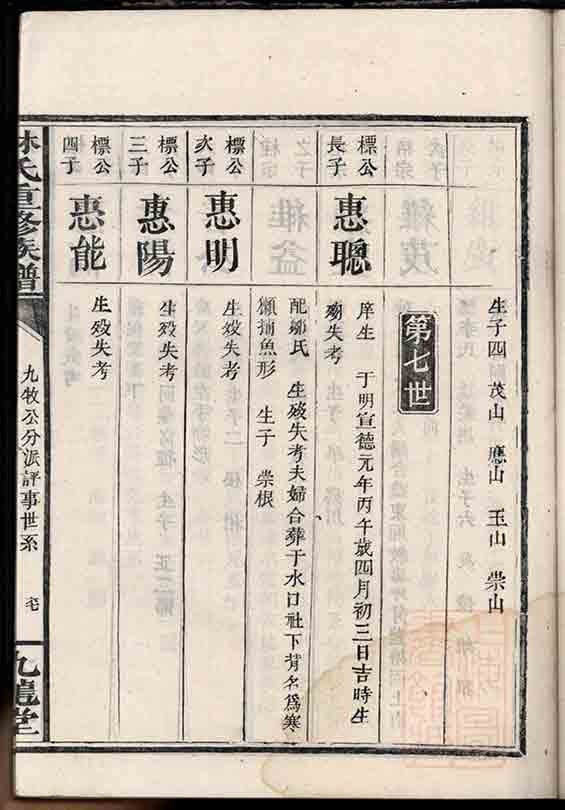 生子四 茂山 應山 玉山 崇山
第七世
標公長子 惠聰
庠生 于明宣德元年丙午歲四月初三日吉時生
歿失考
配鄒氏 生歿失考夫婦合葬于水口社下背名爲寒
獺捕魚形 生子 崇根
標公次子 惠明
生歿失考
標公三子 惠陽
生歿失考
標公四子 惠能
生歿失考
林氏重修族譜
九牧公分派評事世系
九龍堂